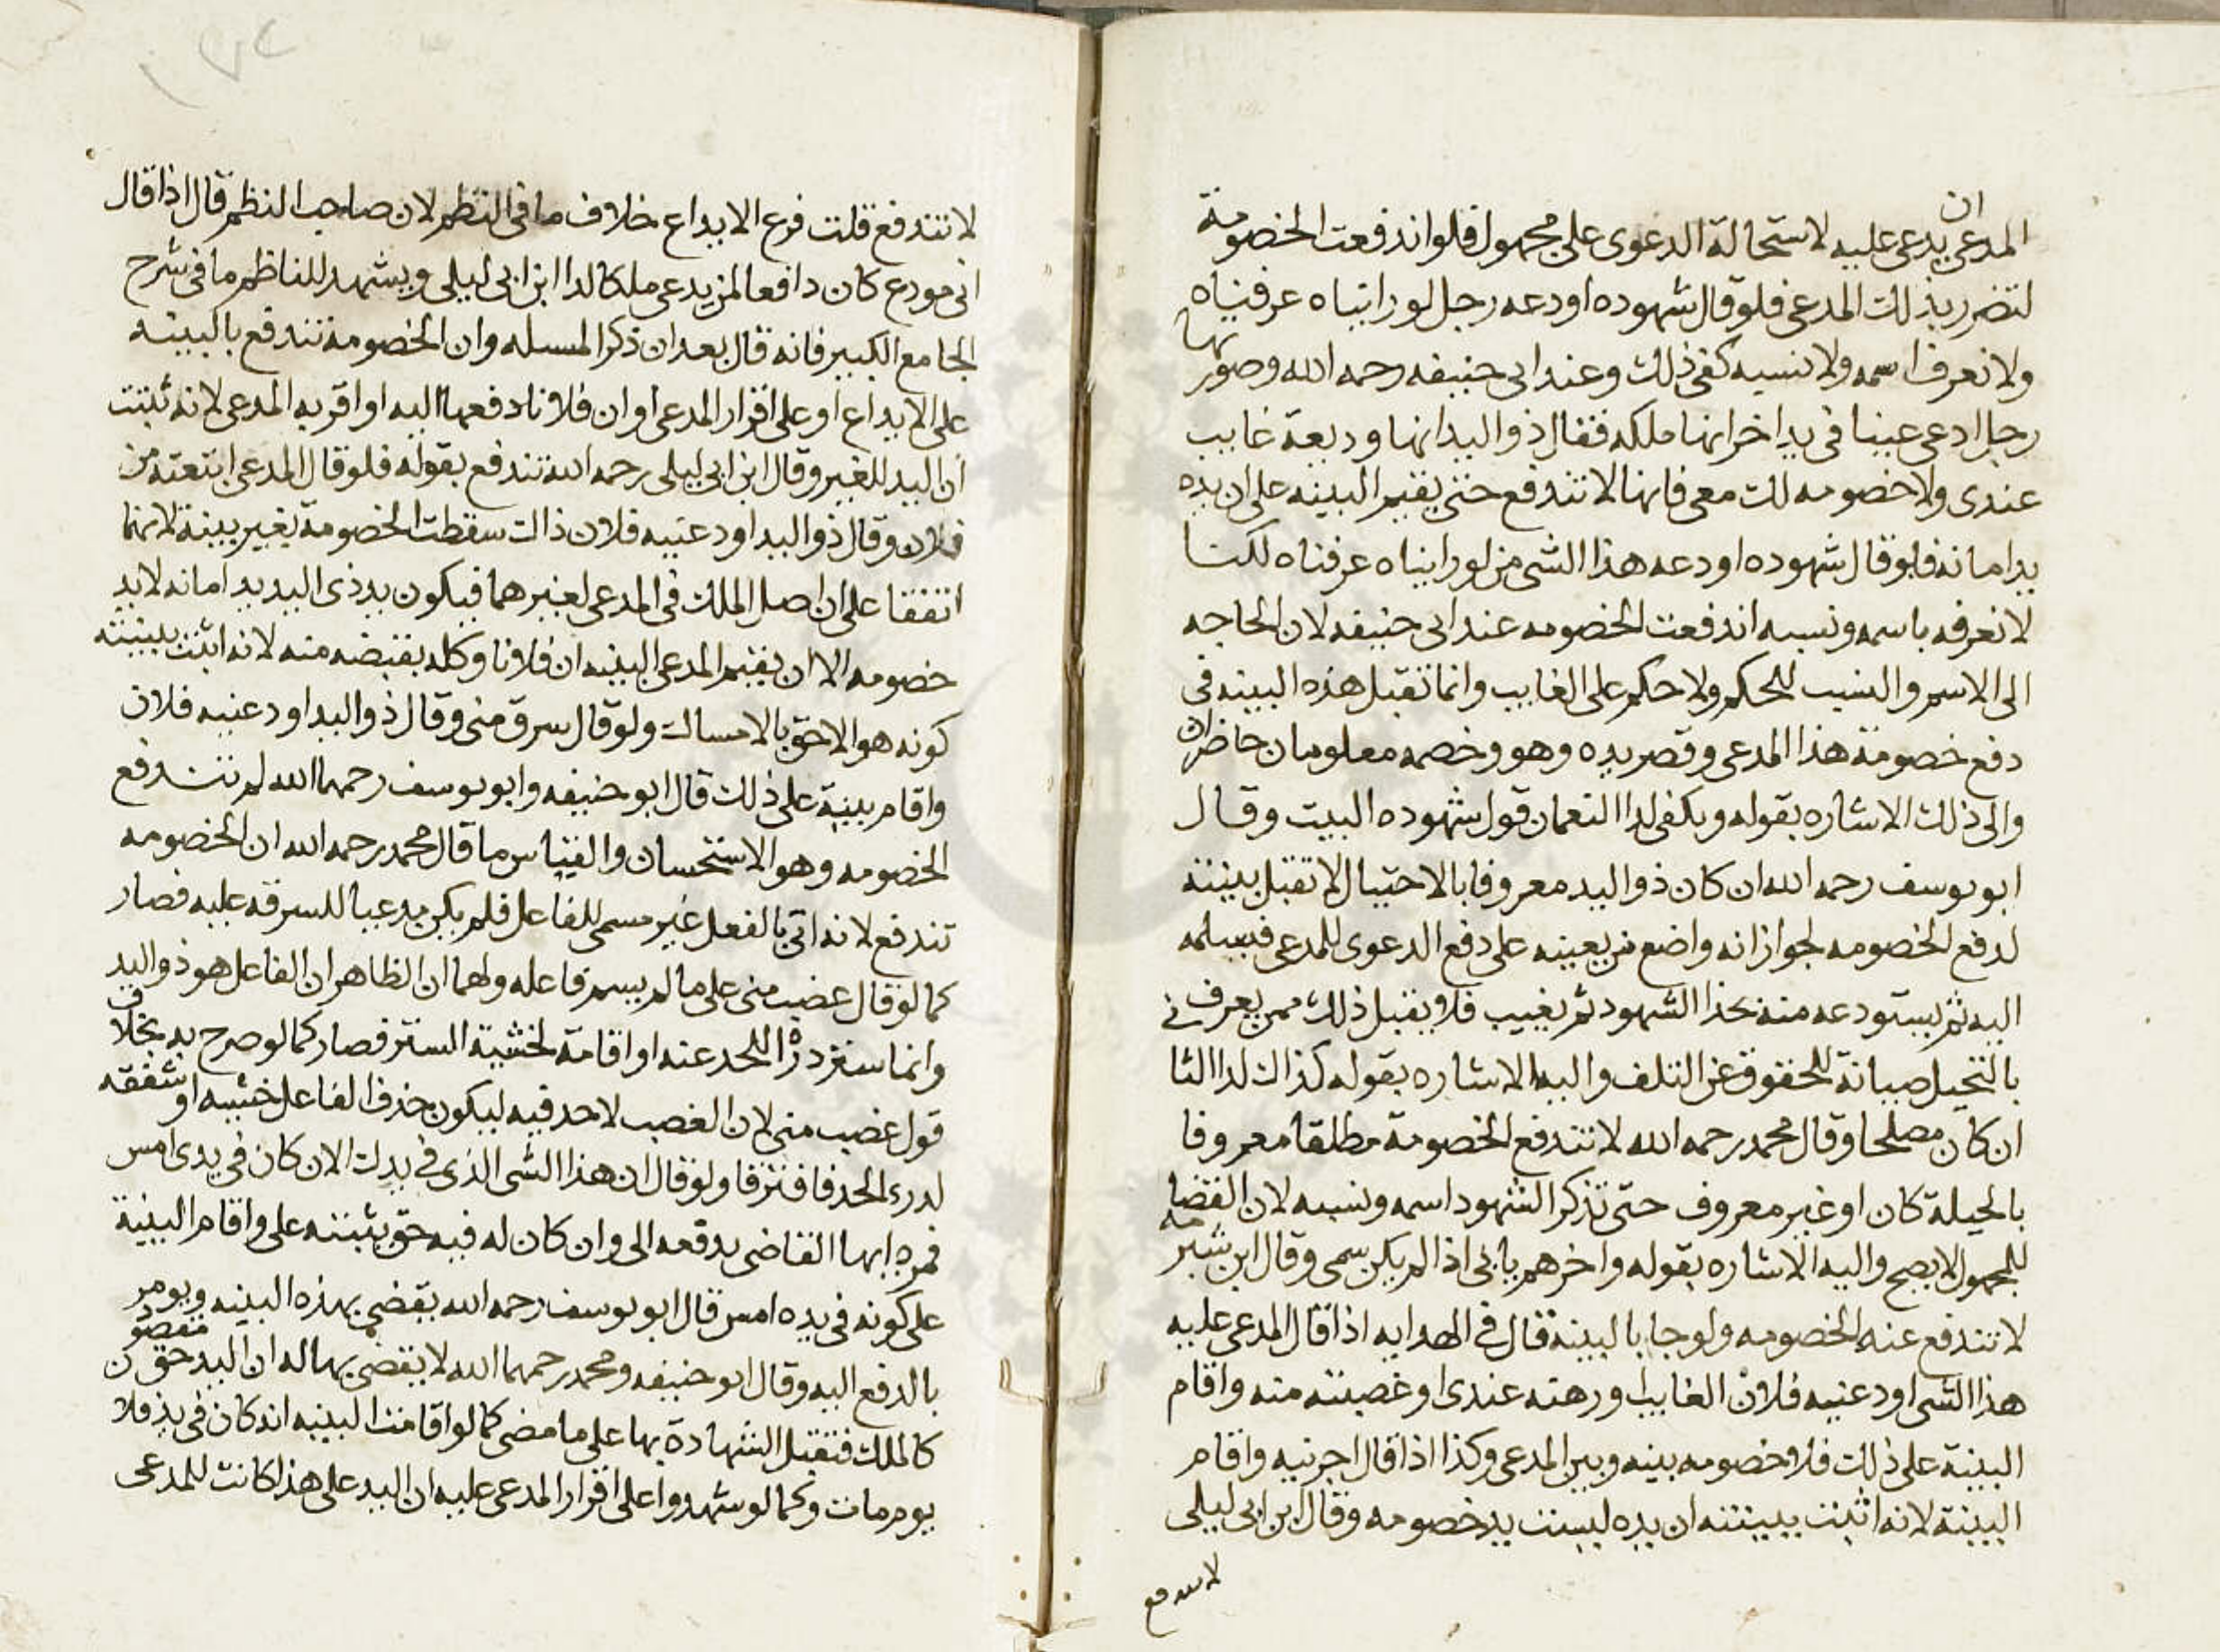 المدعى ان يدعى عليه لاستحالة الدعوى على مجهول فلو اندفعت الخصومة
لتضرر بذلك المدعى فلو قال شهوده اودعه رجل لو رايناه عرفناه
ولا نعرف اسمه ولا نسبه كفى ذلك وعند ابى حنيفه رحمه الله وصورتها
رجل ادعى عينا فى يد اخر انها ملكه فقال ذو اليد انها وديعة غايب
عندى ولا خصومه لك معى فانها لا تندفع حتى يقيم البينه على ان يده
يد امانه فلو قال شهوده اودعه هذا الشى من لو رايناه عرفناه لكنا
لا نعرفه باسمه ونسبه اندفعت الخصومه عند ابى حنيفه لان الحاجه
الى الاسم والنسب للحكم ولا حكم على الغايب وانما تقبل هذه البينه فى
دفع خصومة هذا المدعى وقصر يده وهو وخصمه معلومان حاضران
والى ذلك الاشاره بقوله ويكفى لدا النعمان قول شهوده البيت وقال
ابو يوسف رحمه الله ان كان ذو اليد معروفا بالاحتيال لا تقبل بينته
لدفع الخصومه لجواز انه واضع من يعينه على دفع الدعوى للمدعى فيسلمه
اليه ثم يستودعه منه بحذا الشهود ثم يغيب فلا يقبل ذلك ممن يعرف
بالتحيل صيانة للحقوق عن التلف واليه الاشاره بقوله كذاك لدا الثا
ان كان مصلحا وقال محمد رحمه الله لا تندفع الخصومة مطلقا معروفا
بالحيلة كان او غير معروف حتى تذكر الشهود اسمه ونسبه لان القضا
للمجهول لا يصح واليه الاشاره بقوله واخرهم يابى اذا لم يكن سمى وقال ابن شبرمه
لا تندفع عنه الخصومه ولو جا بالبينة قال فى الهدايه اذا قال المدعى عليه
هذا الشى اودعنيه فلان الغايب او رهنه عندى او غصبته منه واقام
البينة على ذلك فلا خصومه بينه وبين المدعى وكذا اذا قال اجرنيه واقام
البينة لانه اثبت ببينته ان يده ليست يد خصومه وقال ابن ابى ليلى
لا تندفع
لا تندفع قلت فرع الايداع خلاف ما فى النظم لان صاحب النظم قال اذا قال
انى مودع كان دافعا لمن يدعى ملكا لدا ابن ابى ليلى ويشهد للناظم ما فى شرح
الجامع الكبير فانه قال بعد ان ذكر المسله وان الخصومة تندفع بالبينه
على الايداع او على اقرار المدعى او ان فلانا دفعها اليه او اقر به المدعى لانه ثبتت
ان اليد للغير وقال ابن ابى ليلى رحمه الله تندفع بقوله فلو قال المدعى ابتعته من
فلان وقال ذو اليد اودعنيه فلان ذاك سقطت الخصومة بغير بينة لانهما
اتفقا على ان اصل الملك فى المدعى لغيرهما فيكون يد ذى اليد يد امانه لا يد
خصومه الا ان يقيم المدعى البينه ان فلانا وكله بقبضه منه لانه اثبت ببينته
كونه هو الاحق بالامساك ولو قال سرق منى وقال ذو اليد اودعنيه فلان
واقام بينة على ذلك قال ابو حنيفه وابو يوسف رحمهما الله لم تندفع
الخصومه وهو الاستحسان والقياس ما قال محمد رحمه الله ان الخصومه
تندفع لانه اتى بالفعل غير مسمى للفاعل فلم يكن مدعيا للسرقه عليه فصار
كما لو قال غصب منى على ما لم يسم فاعله ولهما ان الظاهر ان الفاعل هو ذو اليد
وانما ستر درا للحد عنه او اقامة لخشية الستر فصار كما لو صرح به بخلاف
قول غصب منى لان الغصب لا حد فيه ليكون حذف الفاعل خشيه او شفقه
لدرى الحد فافترقا ولو قال ان هذا الشى الذى فى يدك الان كان فى يدى امس
فمره ايها القاضى يدفعه الى وان كان له فيه حق يثبته على واقام البينة
على كونه فى يده امس قال ابو يوسف رحمه الله يقضى بهذه البينه ويومر
بالدفع اليه وقال ابو حنيفه ومحمد رحمهما الله لا يقضى بها له ان اليد حق مقصود
كالملك فتقبل الشهادة بها على ما مضى كما لو اقامت البينه انه كان فى يد فلان
يوم مات وكما لو شهدوا على اقرار المدعى عليه ان اليد على هذا كانت للمدعى